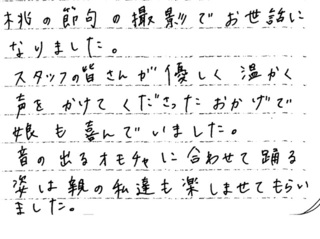 桃の節句の撮影でお世話に
なりました。
スタッフの皆さんが優しく温かく
声をかけてくださったおかげで
娘も喜んでいました。
音の出るオモチャに合わせて踊る
姿は親の私達も楽しませてもらい
ました。